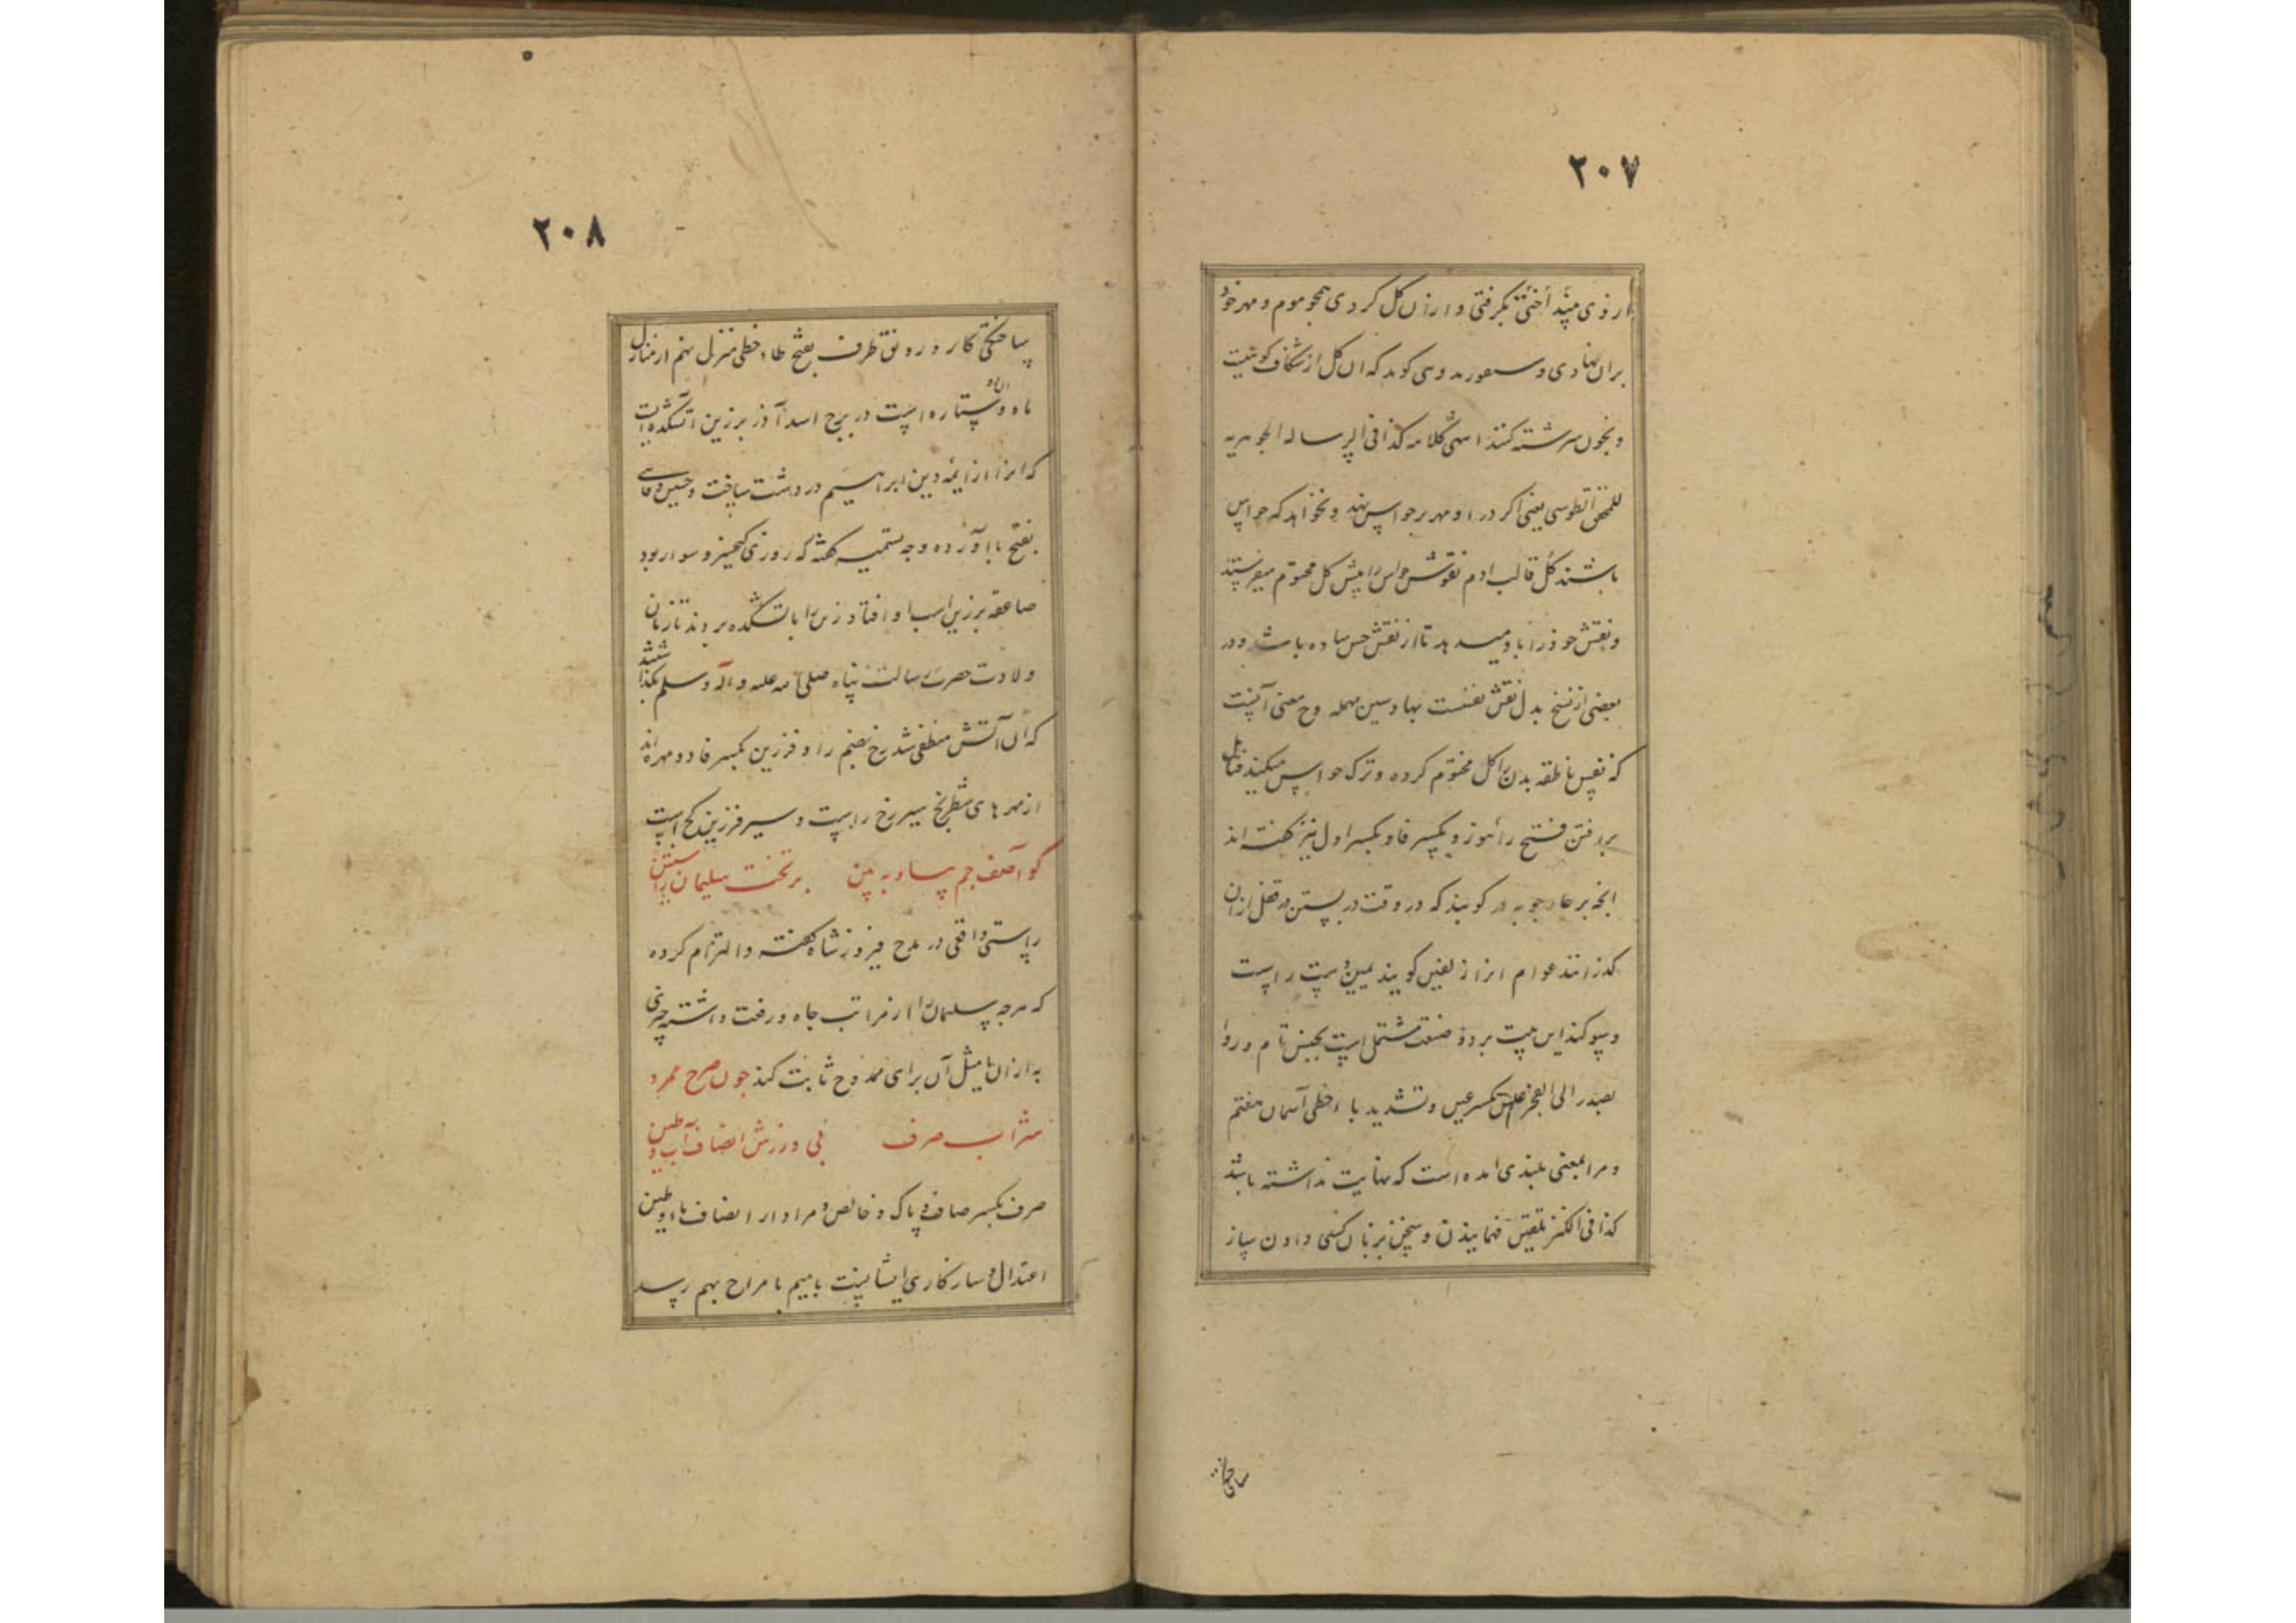 ۲۰۷
از وی میند أختی بگرفتی و ازان گل کردی همچو موم و مهر خود
بران نهادی و سقوریدوس گوید که آن گل از شکاف کوهیست
و بخون سرشته کنند انتهی کلامه کذا فی الرساله الجوهریه
للمحقق الطوسی یعنی اکر در او مهر بر حواس نهد و نخواهد که حواس
باشند گل قالب ادم نقوش حواس را پیش گل مختوم میفرستند
و نقش خود را باو میدهد تا از نقش حس ساده باشد و در
بعضی از نسخ بدل نقش نفست بها و سین مهمله وح معنی آنست
که نفس ناطقه بدن را گل مختوم کرده و ترک حواس میکند فتامل
فتح را هوز و بکسر فا و بکسر اول نیز گفته اند
انچه بر در گویند که در وقت در بستن در قفل ازان
گذرانند عوام انرا زلفین گویند یمین دست راست
و سوگند این بیت بر دو صنعت مشتمل است تجنیس تام و ردا
بصدر الی العجز علیین بکسر عین و تشدید یا ء حطی آسمان هفتم
و مرا بمعنی بلندی امده است که نهایت نداشته باشد
کذا فی الکنز تلقین فهمانیدن و سخن بزبان کسی دادن ساز
ساختگی
۲۰۸
ساختگی کار و رونق طرف بفتح طاء حطی منزل نهم از منازل
ماه و ان دو ستاره است در برج اسد آذر برزین آتشکده ایست
که انرا از ائمه دین ابراهیم در دشت ساخت و حسین وفایی
بفتح با آورده وجه تسمیه گفته که روزی کیخسرو سوار بود
صاعقه بر زین اسب او افتاد زین را باتشکده بردند تا زمان
ولادت حضرت رسالت پناه صلی الله علیه و آله و سلم
که آن آتش منطفی شد رخ بضم را و فرزین بکسر فا دو مهره اند
از مهرهای شطرنج سیر رخ راست و سیر فرزین کج است
گو آصف جم بیا و به بین بر تخت سلیمان راستین
راستی واقعی در مدح فیروز شاه گفته و التزام کرده
که هرچه سلیمان را از مراتب جاه و رفعت داشته چیزی
به ازان یا مثل آن برای ممدوح ثابت کند چون صرح ممرد
شراب صرف فی ورزش انصاف آب و طین
صرف بکسر صاف و پاک و خالص و مراد از انصاف ماء و طین
اعتدال و سازکاری ایشانست باهم تا مزاج بهم رسد